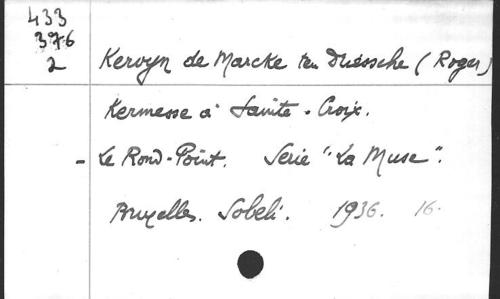 433
376
2 Kervyn de Marcke ten Driessche (Roger)
Kermesse à Sainte-Croix.
- Le Rond-Point. Serie "La Muse".
Bruxelles. Sobeli. 1936. 16.